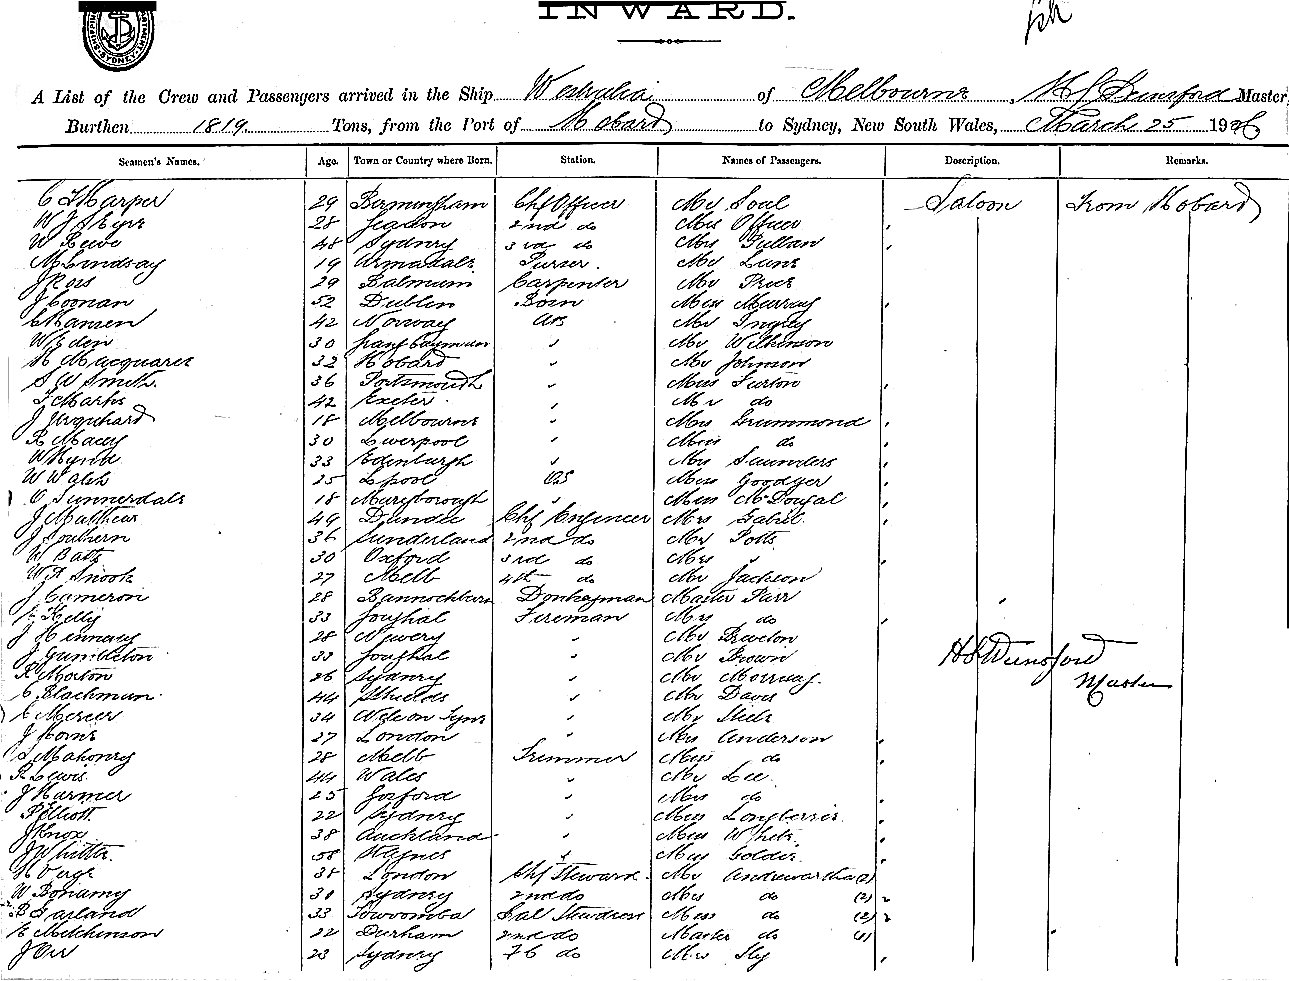 INWARD.
SHIPPING SYDNEY
A List of the Crew and Passengers arrived in the Ship Westralia of Melbourne, Master,
Burthen 1819. Tons, from the Port of Hobard to Sydney, New South Wales, March 25 19
Seamen's Names. Age. Town or Country where Born. Station. Names of Passengers. Description. Remarks.
C T Harper 29 Birmingham Chf Officer Mr Soul Saloon From Hobard
28 2nd do Mrs Officer
W Reeve 48 Sydney 3rd do Mrs Pullan
M Lindsay 19 Armadale Purser. Mr Lane
J Ross 29 Balmain Carpenter Mr Price
J Coonan 52 Dublin Bosn Miss Murray
C Hansen 42 Norway AB Mr
W Eden 30 Mr Wilkinson
H Macquarie 32 Hobard Mr Johnson
S W Smith. 36 Portsmouth Miss
T Marks 42 Exeter. Mr do
J Urquhard 18 Melbourne Mrs Drummond
R Macey 30 Liverpool Miss do
33 Edinburgh Mrs Saunders
W Walsh 25 Lpool OS Miss Goodyer
C Tunnerdale 18 Maryborough Miss McDougal
J Matthew 49 Dundee Chf Engineer Mrs
J Southern 36 Sunderland 2nd do Mr Potts
W Batts 30 Oxford 3rd do Mrs "
W A Snook 27 Melb 4th do Mr Jackson
J Cameron 28 Bannockburn Donkeyman Master Farr
Kelly 33 Youghal Fireman Mrs do
J Hennessy 28 Newery Mr
33 Youghal Mr Brown
R Morton 26 Sydney Mr Master
C Blackman. 44 Shields Mr Davis
C Mercer 34 Mr
J Horne 27 London Mrs Anderson
Mahoney 28 Melb Trimmer Miss do
R Lewis. 44 Wales Mr Lee
J Harmer 25 Gosford Mrs do
P Elliott. 22 Sydney Miss
J Knox 38 Auckland Miss White
J Whitta. 58 Miss Golder
H Verge 38 London Chf Steward. Mr Andrewartha (2)
W Bonamy 30 Sydney 2nd do Mrs do (2)
B Garland 33 Towoomba Sal Stewdess Miss do (2)
E Mitchinson 22 Durham 2nd do Master do (1)
J Orr 23 Sydney do Mrs Sly